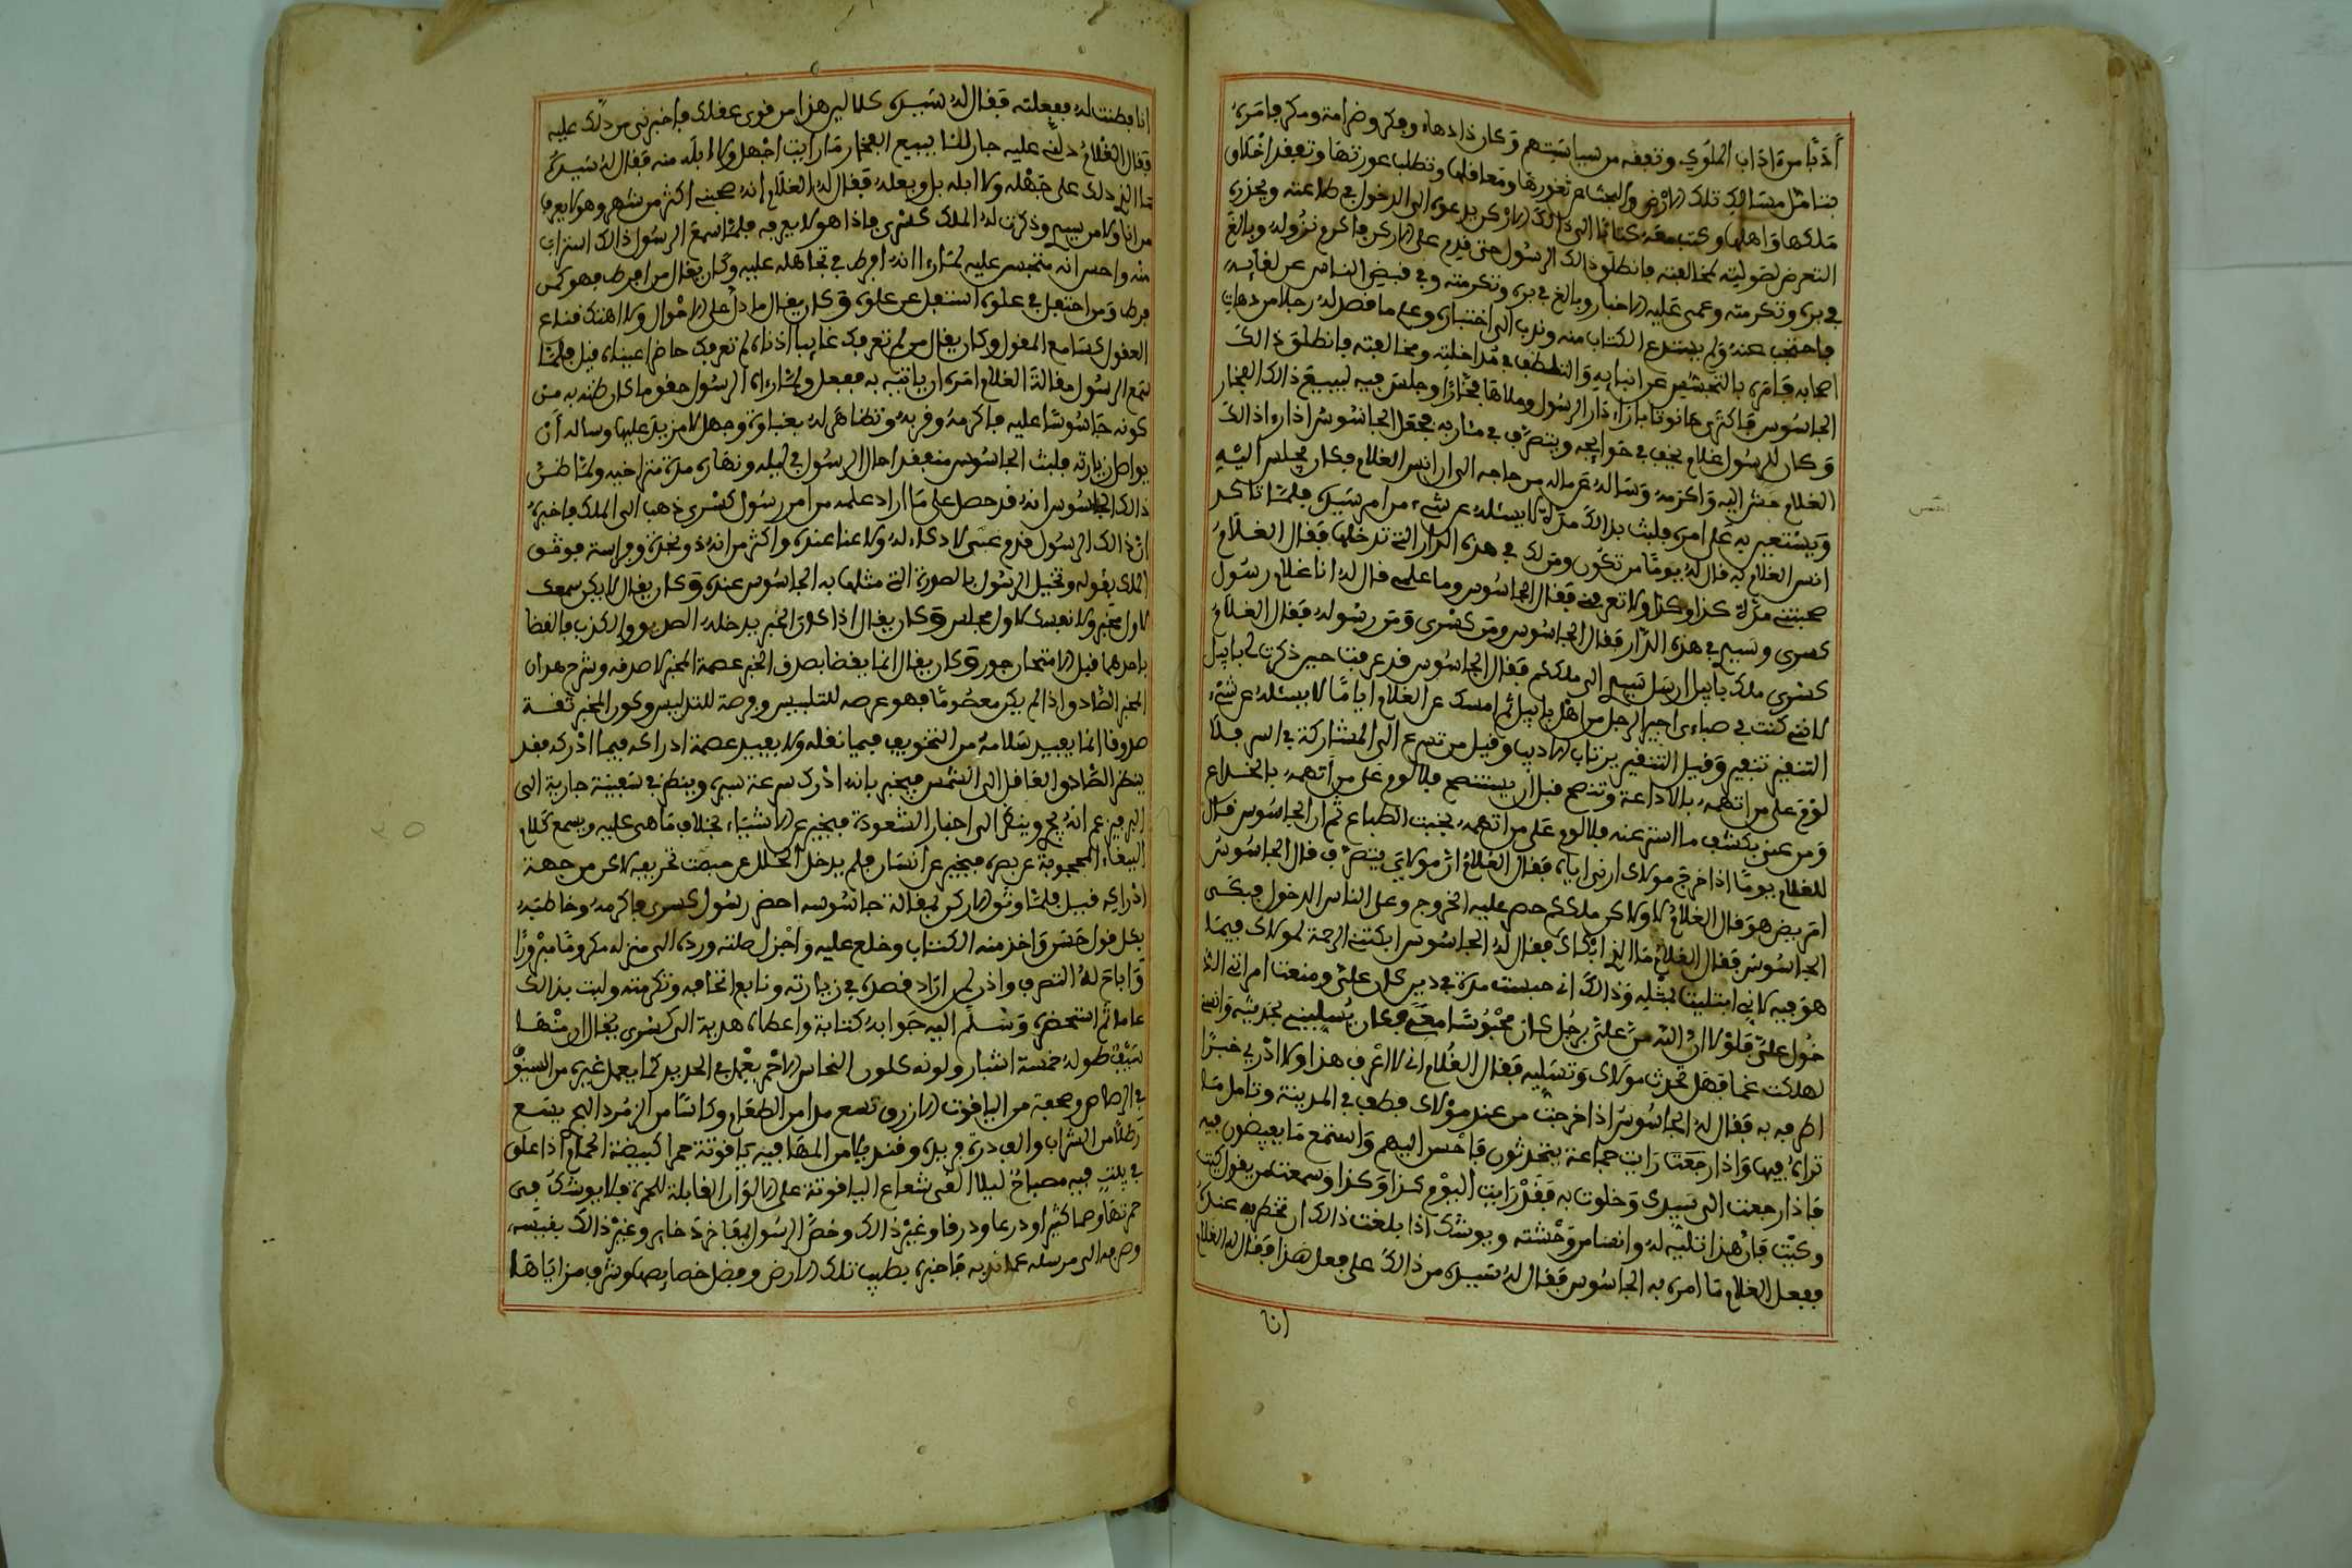 أدبًا من ءاداب الملوك وتفقه من سياستهم وكان ذا دهاء ومكر وصرامة ومكر فامره
بتامل مسالك تلك الارض والبحث عن ثغورها ومعاقلها وتطلب عورتها وتفقد اخلاق
ملكها واهلها وكتب معه كتابا الى ذالك الاركن يدعوه الى الدخول في طاعته ويحذره
التعرض لصولته بمخالفته فانطلق ذالك الرسول حتى قدم على الاركن فاكرم نزوله وبالغ
في بره وتكرمته وعمى عليه الاخبار وبالغ في بره وتكرمته وفي قبض الناس عن لقايه
فاحتجب عنه ولم يستدع الكتاب منه وندب الى اختباره وعلم ما قصد له رجلا من دهات
اصحابه فامره بالتجسس عن انبايه والتلطف في مداخلته ومخالفته فانطلق ذالك
الجاسوس فاكترى حانوتا بازاء دار الرسول وملاها فخارا وجلس فيه لبيع ذالك الفخار
وكان للرسول غلام يخف في حوايجه ويتصرف في مئاربه فجعل الجاسوس اذا راء ذالك
الغلام هش اليه واكرمه وساله عن ماله من حاجه الى ان انس الغلام فكان يجلس اليه
ويستعين به على امره فلبث بذالك مدة لا يسئله عن شيء من امر سيده فلما تاكد
انس الغلام به قال له يوما من تكون ومن لك في هذه الدار التي تدخلها فقال الغلام
صحبتني مدة كذا وكذا ولا تعرفني فقال الجاسوس وما علمي قال له انا غلام رسول
كسرى وسيدي في هذه الدار فقال الجاسوس ومن كسرى ومن رسوله فقال الغلام
كسرى ملك بابل ارسل سيدي الى ملككم فقال الجاسوس قد عرفت حين ذكرت لي بابل
لانني كنت في صباءي اجير الرجل من اهل بابل ثم امسك عن الغلام اياما لا يسئله عن شيء
التنفير تنفير وقيل التنفير يرتاب الاديب وقيل من تسرع الى المشاركة في السر فلا
لوم على من اتهمه بالاذاعة وتنصح قبل ان يستنصح فلا لوم على من اتهمه بالخداع
ومن عني بكشف ما استر عنه فلا لوم على من اتهمه بخبث الطباع ثم ان الجاسوس قال
للغلام يوما اذا خرج مولاك ارني اياه فقال الغلام ان مولاي لا يتصرف قال الجاسوس
امريض هو قال الغلام لا ولاكن ملككم حصر عليه الخروج وعلى الناس الدخول فبكى
الجاسوس فقال الغلام ما الذي ابكاك فقال له الجاسوس ابكتني الرحمة لمولاك فيما
هو فيه لاني ابتليت بمثله وذالك اني حبست مدة في دين كان علي ومنعت امراتي الد
خول علي فلولا ان الله من علي برجل كان محبوسا معي فكان يسليني بحديثه وانسه
لهلكت غما فهل تحدث مولاك وتسليه فقال الغلام اني لا اعرف هذا ولا ادري خبرا
اطرفه به فقال له الجاسوس اذا خرجت من عند مولاك فطف في المدينة وتامل ما
تراه فيها واذا رجعت رايت جماعة يتحدثون فاجلس اليهم واستمع ما يفيضون فيه
فاذا رجعت الى سيدك وخلوت به فقل رايت اليوم كذا وكذا وسمعت من يقول كيت
وكيت فان هذا تسلية له وانسا من وحشته ويوشك اذا بلغت ذالك ان تحظى به عنده
ففعل الغلام ما امره به الجاسوس فقال له سيده من ذالك على فعل هذا فقال له الغلام
انا
انا فطنت له ففعلته فقال له سيده كلا ليس هذا من قوى عقلك فاخبرني من دلك عليه
فقال الغلام دلني عليه جار لنا يبيع الفخار ما رايت اجهل ولا ابله منه فقال له سيده
ما الذي دلك على جهله ولا ابله بل وبعله فقال له الغلام انه صحبني اكثر من شهر وهو لا يعرف
من انا ولا من سيدي وذكرت له الملك كسرى فاذا هو لا يعرفه فلما سمع الرسول ذالك استراب
منه واحس انه متجسس عليه لما راء انه افرط في تجاهله عليه وكان يقال من افرط فهو كمن
فرط ومن احتفل في علوه استفل عن علوه وكان يقال ما دل على الاحوال ولا اهتك قناع
العقول كسامع المقول وكان يقال من لم تعرفك غايبا اذناه لم تعرفك حاضرا عيناه قيل فلما
سمع الرسول مقالة الغلام امره ان ياتيه به ففعل ولما راءه الرسول حقق ما كان ظنه به من
كونه جاسوسا عليه فاكرمه وقربه وتظاهر له بغباوة وجهل لا مزيد عليها وساله ان
يواصل زيارته فلبث الجاسوس متفقدا حال الرسول في ليله ونهاره مدة متراخيه ولما ظن
ذالك الجاسوس انه قد حصل على ما اراد علمه من امر رسول كسرى ذهب الى الملك فاخبره
ان ذالك الرسول فدم غبي لا ذكاء له ولا غنا عنده واكثر من انه ذو نجدة وفراسة فوثق
الملك بقوله وتخيل الرسول بالصورة التي مثلها به الجاسوس عنده وكان يقال لا يكن سمعك
لاول مخبر ولا نفسك لاول مجلس وكان يقال اذا كان الخبر يدخله الصدق والكذب فالقضا
باحدهما قبل الامتحان جور وكان يقال انما يقضا بصدق الخبر عصمة المخبر لا صدقه وشرح هذا ان
المخبر الصادق اذا لم يكن معصوما فهو عرضة للتلبيس وفرصة للتدليس وكون المخبر ثقة
صدوقا انما يفيد سلامة من التحريف فيما نقله ولا يفيد عصمة ادراكه فيما ادركه فقد
ينظر الصادق الغافل الى الشمس فيخبر بانه ادرك سرعة سيره وينظر في سفينة جارية الى
البر فيزعم انه يجري وينظر الى اخبار الشعوذة فيخبر عن الاشياء بخلاف ما هي عليه ويسمع كلام
الببغاء المحجوبة عن بصره فيخبر عن انسان فلم يدخل الخلل عن جهة تحريفه لاكن من جهة
ادراكه قيل فلما وثق الاركن بمقالة جاسوسه احضر رسول كسرى فاكرمه وخاطبه
بكل قول حسن واخذ منه الكتاب وخلع عليه واجزل صلته ورده الى منزله مكرما مبرورا
واباح له التصرف واذن لمن اراد قصده في زيارته وتابع اتحافه وتكرمته ولبث بذالك
عاما ثم استحضره وسلم اليه جوابه كتابة واعطاه هدية الى كسرى يقال ان منها
سيف طوله خمسة اشبار ولونه كلون النحاس الاحمر يعمل في الحديد كما يعمل غيره من السيوف
في الرصاص وصحفة من الياقوت الازرق تسع مدا من الطعام وكاسا من الزمرد البحري يسع
رطلا من الشراب والف درة فريدة وقنديلا من المها فيه ياقوتة حمرا كبيضة الحمام اذا علق
في بيت فيه مصباح ليلا القى شعاع الياقوتة على الالوان القابلة للحمرة فلا يوشك في
حمرتها وصما كثيرا ودرعا ودرقا وغير ذالك وخص الرسول بمفاخر ذخاير وغير ذالك بنفيسه
وصرفه الى مرسله عما قدم به فاخبره بطيب تلك الارض وفضل خصايصها وشرف مزاياها